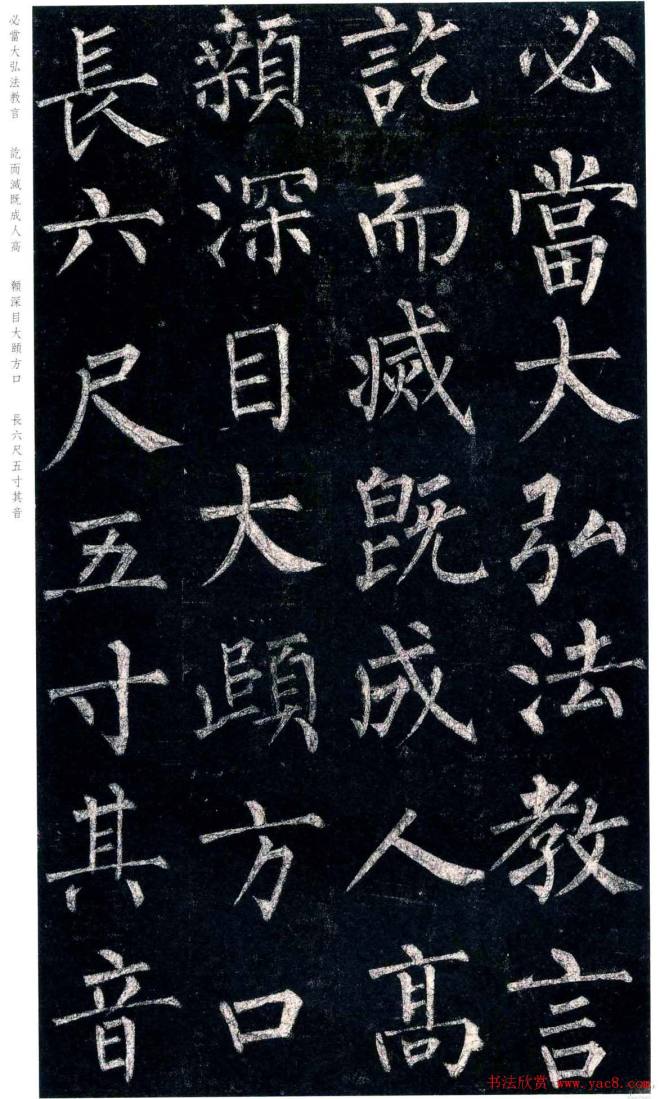 必當大弘法教言
訖而滅既成人高
顙深目大頤方口
長六尺五寸其音
必當大弘法教言 訖而滅既成人高 顙深目大頤方口 長六尺五寸其音
书法欣赏 www.yac8.com